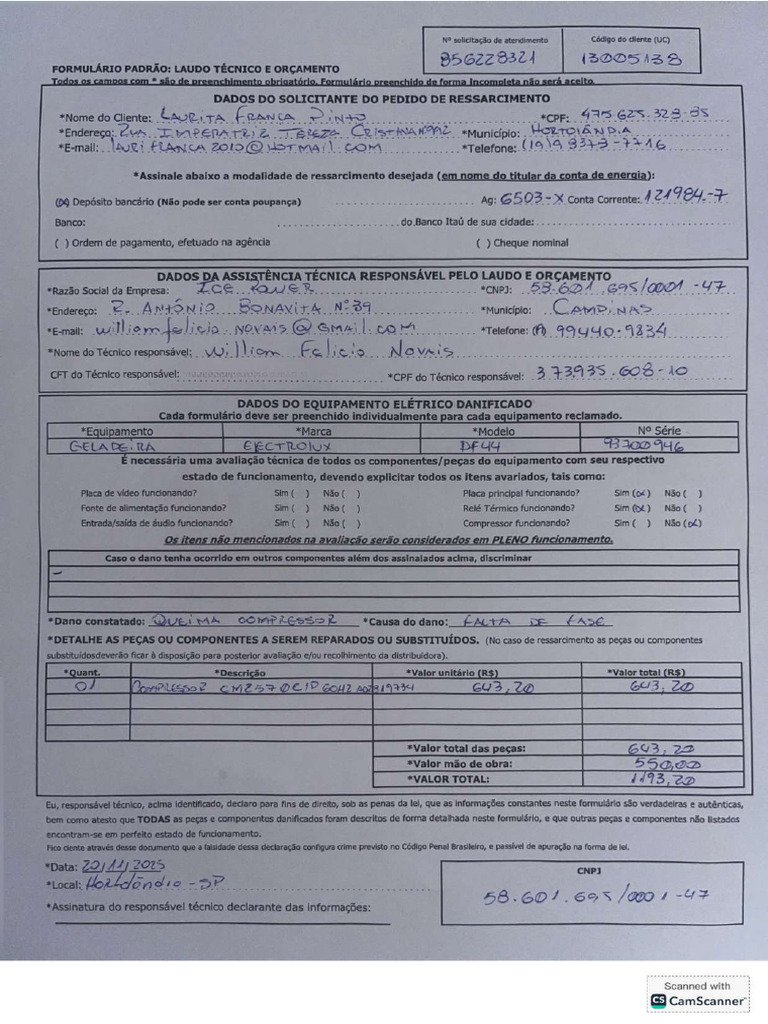 Nº solicitação de atendimento
856228321
Código do cliente (UC)
13005138
FORMULÁRIO PADRÃO: LAUDO TÉCNICO E ORÇAMENTO
Todos os campos com * são de preenchimento obrigatório. Formulário preenchido de forma incompleta não será aceito.
DADOS DO SOLICITANTE DO PEDIDO DE RESSARCIMENTO
*Nome do Cliente: LAURITA FRANCA PINTO *CPF: 475.625.323-35
*Endereço: RUA. IMPERATRIZ TEREZA CRISTINA Nº992 *Município: HORTOLÂNDIA
*E-mail: laurifranca2010@HOTMAIL.COM *Telefone: (19)98373-7716
*Assinale abaixo a modalidade de ressarcimento desejada (em nome do titular da conta de energia):
(X) Depósito bancário (Não pode ser conta poupança) Ag: 6503-X Conta Corrente: 121984-7
Banco: do Banco Itaú de sua cidade:
( ) Ordem de pagamento, efetuado na agência ( ) Cheque nominal
DADOS DA ASSISTÊNCIA TÉCNICA RESPONSÁVEL PELO LAUDO E ORÇAMENTO
*Razão Social da Empresa: ICE POWER *CNPJ: 58.601.695/0001-47
*Endereço: R. ANTÔNIO BONAVITA Nº39 *Município: CAMPINAS
*E-mail: williomfelicio.NOVAIS@GMAIL.COM *Telefone: (19) 99440-9834
*Nome do Técnico responsável: Williom Felicio Novais
CFT do Técnico responsável: *CPF do Técnico responsável: 373935.608-10
DADOS DO EQUIPAMENTO ELÉTRICO DANIFICADO
Cada formulário deve ser preenchido individualmente para cada equipamento reclamado.
*Equipamento *Marca *Modelo Nº Série
GELADEIRA ELECTROLUX DF44 93700946
É necessária uma avaliação técnica de todos os componentes/peças do equipamento com seu respectivo
estado de funcionamento, devendo explicitar todos os itens avariados, tais como:
Placa de vídeo funcionando? Sim ( ) Não ( ) Placa principal funcionando? Sim (X) Não ( )
Fonte de alimentação funcionando? Sim ( ) Não ( ) Relé Térmico funcionando? Sim (X) Não ( )
Entrada/saída de áudio funcionando? Sim ( ) Não ( ) Compressor funcionando? Sim ( ) Não (X)
Os itens não mencionados na avaliação serão considerados em PLENO funcionamento.
Caso o dano tenha ocorrido em outros componentes além dos assinalados acima, discriminar
–
*Dano constatado: QUEIMA COMPRESSOR *Causa do dano: FALTA DE FASE
*DETALHE AS PEÇAS OU COMPONENTES A SEREM REPARADOS OU SUBSTITUÍDOS. (No caso de ressarcimento as peças ou componentes
substituídosdeverão ficar à disposição para posterior avaliação e/ou recolhimento da distribuídora).
*Quant. *Descrição *Valor unitário (R$) *Valor total (R$)
01 COMPRESSOR 60HZ 643,20 643,20
*Valor total das peças: 643,20
*Valor mão de obra: 550,00
*VALOR TOTAL: 1193,20
Eu, responsável técnico, acima identificado, declaro para fins de direito, sob as penas da lei, que as informações constantes neste formulário são verdadeiras e autênticas,
bem como atesto que TODAS as peças e componentes danificados foram descritos de forma detalhada neste formulário, e que outras peças e componentes não listados
encontram-se em perfeito estado de funcionamento.
Fica ciente através desse documento que a falsidade dessa declaração configura crime previsto no Código Penal Brasileiro, e passível de apuração na forma de lei.
*Data: 20/11/2025
*Local: Hortolândia-SP
*Assinatura do responsável técnico declarante das informações:
CNPJ
58.601.695/0001-47
Scanned with
CS CamScanner